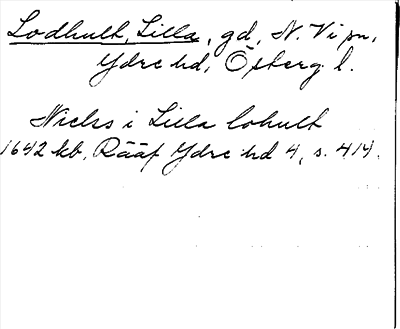 Lodhult, Lilla, gd, N. Vi sn,
Ydre hd, Östergl.
Niels i Lilla lohult
1642 kb, Rääf Ydre hd 4, s. 414.